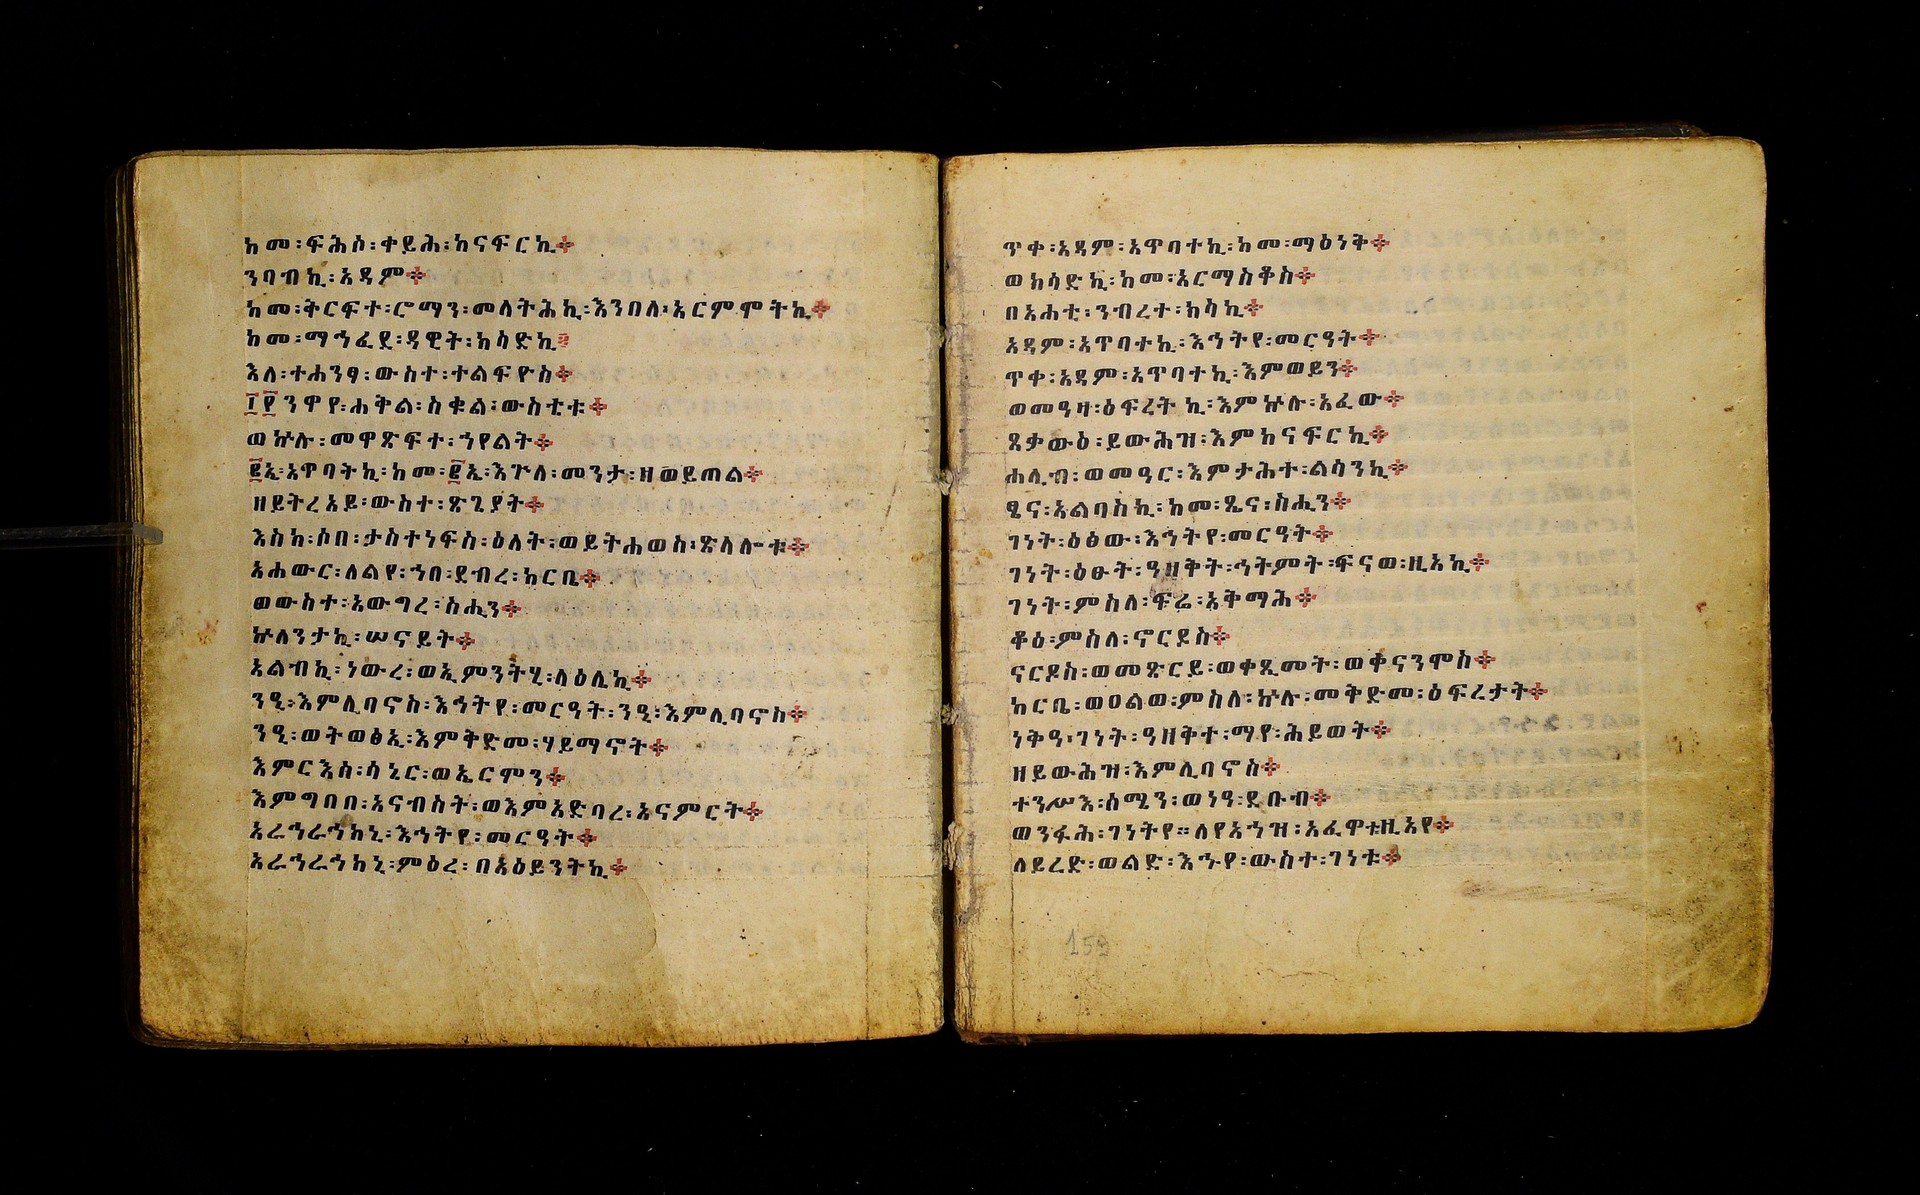 ከመ፡ፍሕሶ፡ቀይሕ፡ከናፍርኪ፨
ንባብኪ፡አዳም፨
ከመ፡ቅርፍተ፡ሮማን፡መለትሕኪ፡እንበለ፡አርምሞትኪ፨
ከመ፡ማኅፈደ፡ዳዊት፡ክሳድኪ፨
እለ፡ተሐንፃ፡ውስተ፡ተልፍዮስ፨
፲፻ንዋየ፡ሐቅል፡ስቁል፡ውስቲቱ፨
ወኵሉ፡መዋጽፍተ፡ኀየልት፨
፪ኢ፡አጥባትኪ፡ከመ፡፪ኢ፡እጕለ፡መንታ፡ዘወይጠል፨
ዘይትረአይ፡ውስተ፡ጽጊያት፨
እስከ፡ሶበ፡ታስተነፍስ፡ዕለት፡ወይትሐወስ፡ጽላሎቱ፨
አሐውር፡ለልየ፡ኀበ፡ደብረ፡ከርቤ፨
ወውስተ፡አውግረ፡ስሒን፨
ኵለንታኪ፡ሠናይት፨
አልብኪ፡ነውረ፡ወኢምንትሂ፡ላዕሌኪ፨
ንዒ፡እምሊባኖስ፡እኅትየ፡መርዓት፡ንዒ፡እምሊባኖስ፨
ንዒ፡ወትወፅኢ፡እምቅድመ፡ሃይማኖት፨
እምርእስ፡ሳኔር፡ወኤርሞን፨
እምግበበ፡አናብስት፡ወእምአድባረ፡አናምርት፨
አረኀራኅከኒ፡እኅትየ፡መርዓት፨
አረኀራኅከኒ፡ምዕረ፡በአዕይንትኪ፨
ጥቀ፡አዳም፡አጥባተኪ፡ከመ፡ማዕነቅ፨
ወክሳድኪ፡ከመ፡አርማስቆስ፨
በአሐቲ፡ንብረተ፡ክሳኪ፨
አዳም፡አጥባተኪ፡እኅትየ፡መርዓት፨
ጥቀ፡አዳም፡አጥባተኪ፡እምወይን፨
ወመዓዛ፡ዕፍረትኪ፡እምኵሉ፡አፈው፨
ጸቃውዕ፡ይውሕዝ፡እምከናፍርኪ፨
ሐሊብ፡ወመዓር፡እምታሕተ፡ልሳንኪ፨
ፄና፡አልባስኪ፡ከመ፡ጼና፡ስሒን፨
ገነት፡ዕፅው፡እኅትየ፡መርዓት፨
ገነት፡ዕፁት፡ዓዘቅት፡ኅትምት፡ፍናወ፡ዚአኪ፨
ገነት፡ምስለ፡ፍሬ፡አቅማሕ፨
ቆዕ፡ምስለ፡ኖርደስ፨
ናርዶስ፡ወመጽርይ፡ወቀጺመት፡ወቀናንሞስ፨
ከርቤ፡ወዐልወ፡ምስለ፡ኵሉ፡መቅድመ፡ዕፍረታት፨
ነቅዓ፡ገነት፡ዓዘቅተ፡ማየ፡ሕይወት፨
ዘይውሕዝ፡እምሊባኖስ፨
ተንሥእ፡ሰሜን፡ወነዓ፡ደቡብ፨
ወንፋሕ፡ገነትየ።ለየአኅዝ፡አፈዋቲዚአየ፨
ለይረድ፡ወልድ፡እኁየ፡ውስተ፡ገነቱ፨
159